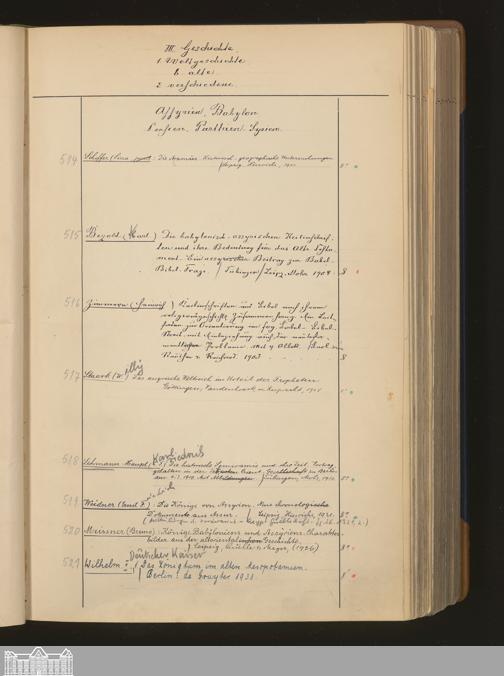 III. Geschichte.
1. Weltgeschichte
b. alte.
2. verschiedene.
Assyrien, Babylon
Persien, Parther, Syrien.
514 Schiffer (Sina Die Aramäer. Historisch-geographische Untersuchungen
Leipzig, Hinrichs, 1911 8°
515 Bezold (Karl) Die babylonisch-assyrischen Keilinschrif-
ten und ihre Bedeutung für das Alte Testa-
ment. Ein assyrischer Beitrag zur Babel-
Bibel-Frage. / Tübingen / Leipz. Mohr 1904. 8
516 Zimmern (Heinrich) Keilinschriften und Bibel nach ihrem
religionsgeschichtl. Zusammenhang. Ein Leit-
faden zur Orientierung im sog. Babel-Bibel-
Streit mit Einbeziehung auch der neutesta-
mentlichen Probleme. Mit 9 Abbild.
Reuther & Reichard. 1903 8
517 Staerk (W illy Das assyrische Weltreich im Urteil der Propheten
Göttingen, Vandenhoeck u. Ruprecht, 1908
518 Lehmann-Haupt (Karl Friedrich Die historische Semiramis und ihre Zeit. Vortrag
gehalten in der Deutschen Orient-Gesellschaft zu Berlin
am 6/2 1910. Mit Abbildungen. Tübingen, Mohr, 1910. 8°
519 Weidner (Ernst F.) Die Könige von Assyrien. Neue chronologische
Dokumente aus Assur. (Leipzig, Hinrichs, 1921. 8°
520 Meissner (Bruno) Könige Babyloniens und Assyriens. Charakter-
bilder aus der altorientalischen Geschichte.
) Leipzig, Quelle & Meyer, (1926) 8°
521 Wilhelm II Deutscher Kaiser Das Königtum im alten Mesopotamien.
Berlin: de Gruyter 1938. 8°